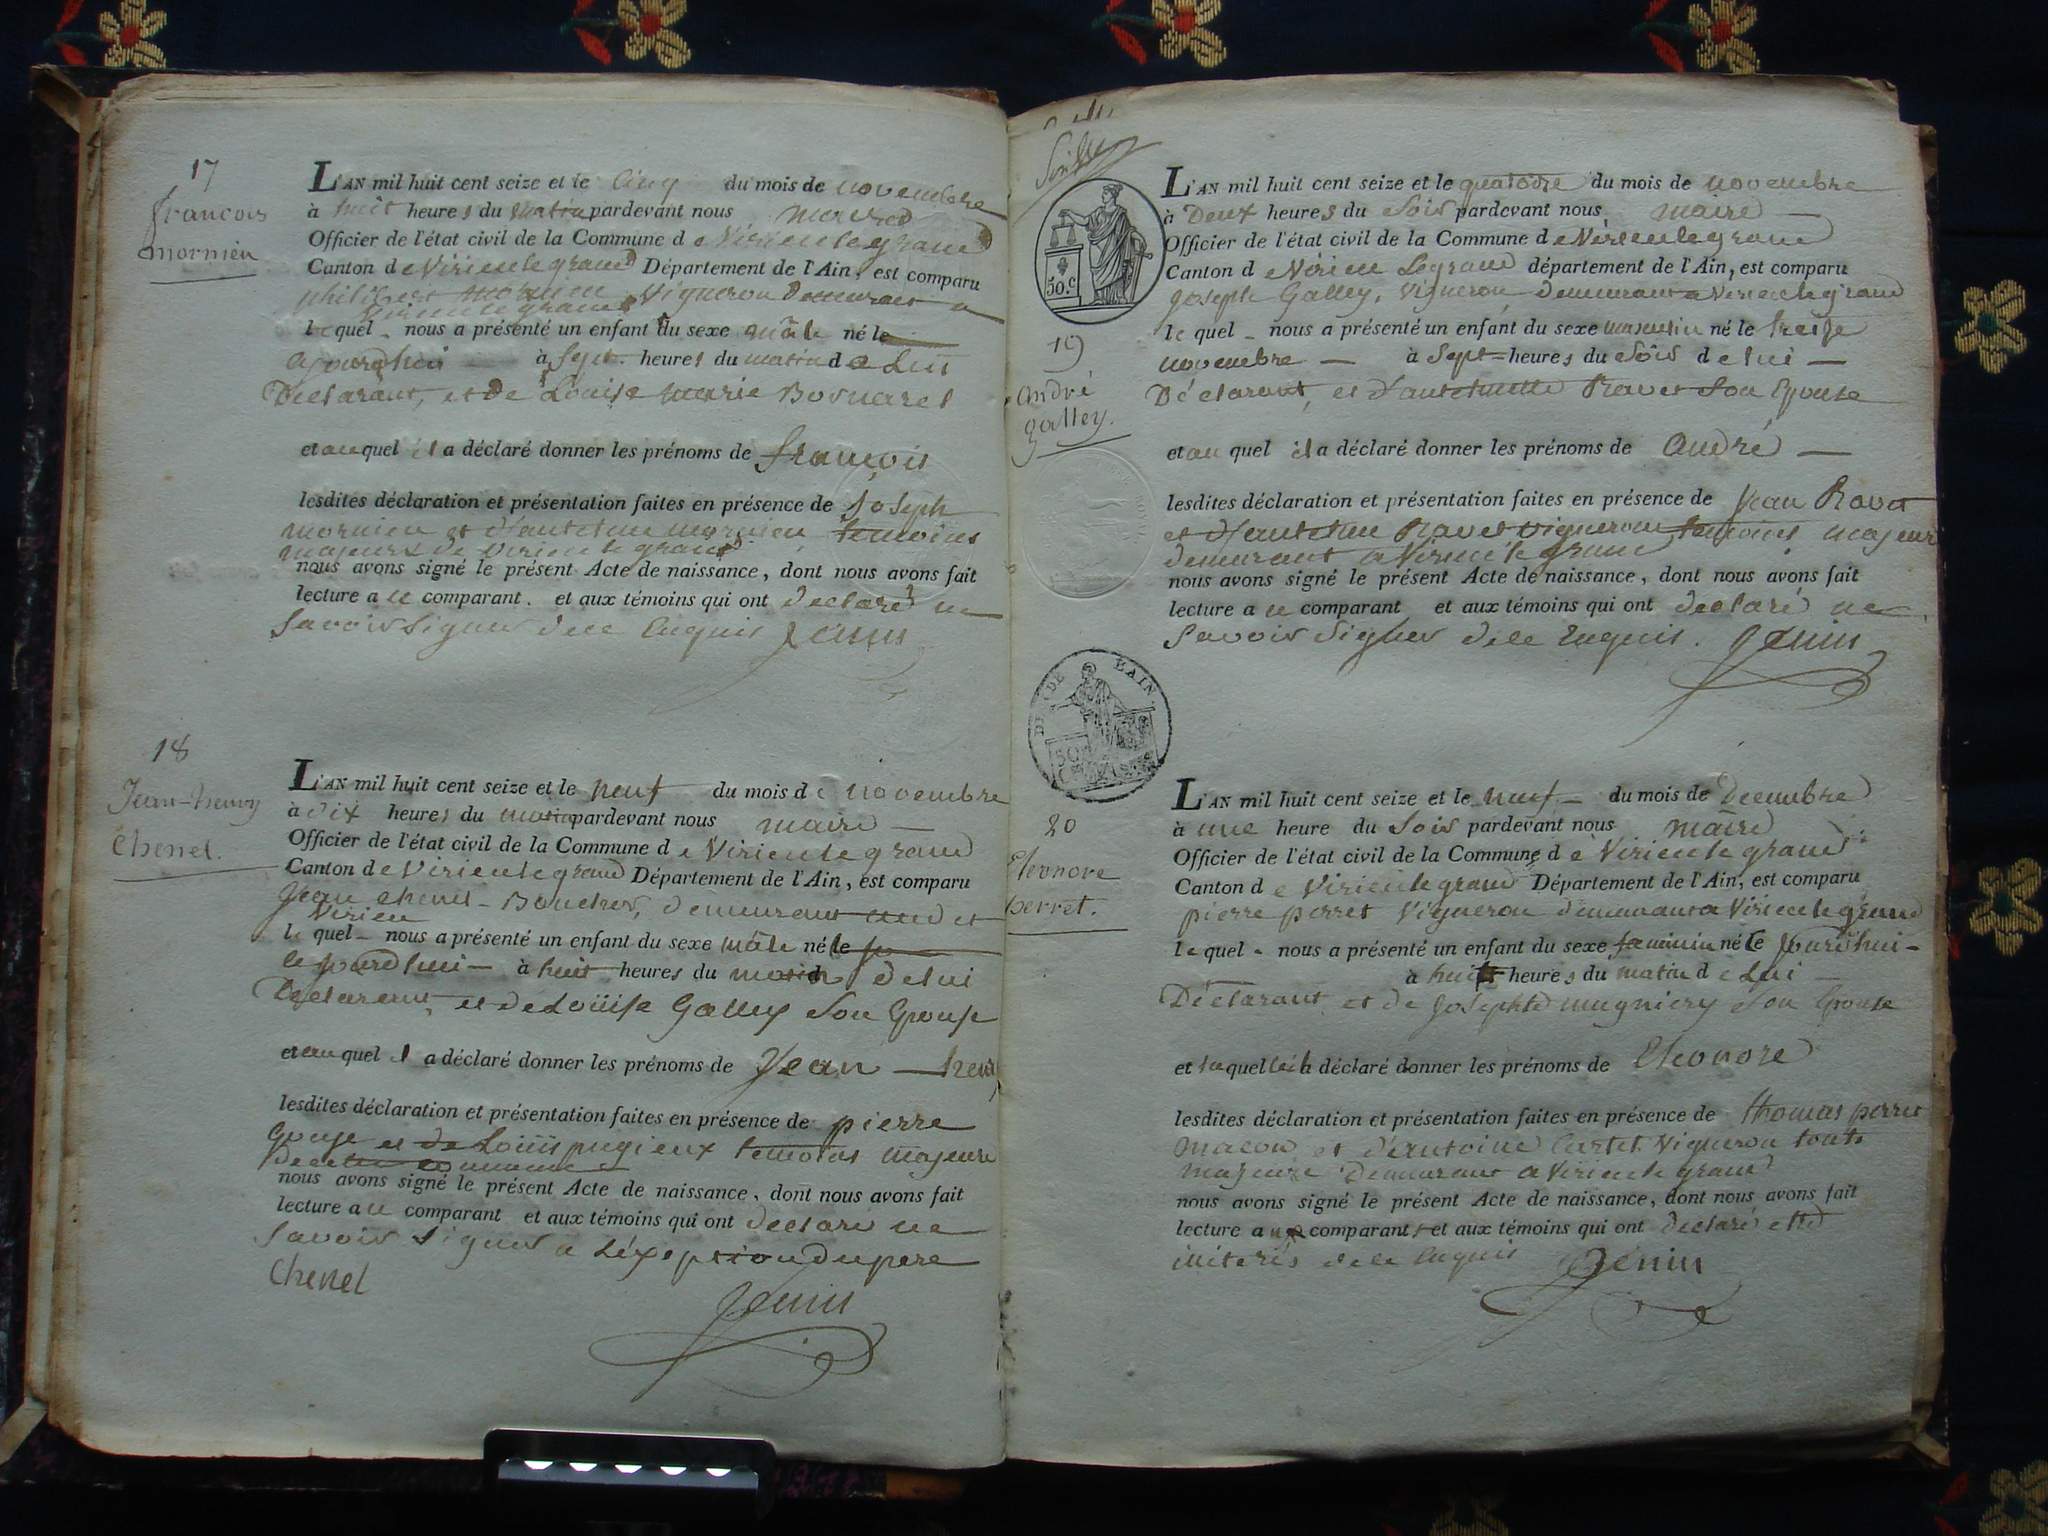 17
françois
mornieu
L'AN mil huit cent seize et le cinq du mois de novembre
à huit heures du matin pardevant nous maire
Officier de l'état civil de la Commune de Virieu le grand
Canton de Virieu le grand Département de l'Ain, est comparu
philibert mornieu Vigneron Demeurant a
Virieu le grand
lequel nous a présenté un enfant du sexe mâle né le
à sept heures du matin de Lui
Déclarant, et de Louise marie Bornarel
et auquel il a déclaré donner les prénoms de françois
lesdites déclaration et présentation faites en présence de Joseph
mornieu et d'antelme mornieu temoins
majeurs de Virieu le grand
nous avons signé le présent Acte de naissance, dont nous avons fait
lecture a ce comparant et aux témoins qui ont declaré ne
Savoir Signer de ce Enquis Jenin
18
Jean-henry
Chenel.
L'AN mil huit cent seize et le neuf du mois de novembre
à dix heures du matin pardevant nous maire
Officier de l'état civil de la Commune de Virieu le grand
Canton de Virieu le grand Département de l'Ain, est comparu
Jean chenel Boucher, demeurant
Virieu
lequel nous a présenté un enfant du sexe mâle né le
à huit heures du matin de lui
Déclarant, et de Loüise Galley Son Epouse
et auquel il a déclaré donner les prénoms de Jean henry
lesdites déclaration et présentation faites en présence de pierre
Gouje et de Loüis pugieux temoins majeurs
de cette commune
nous avons signé le présent Acte de naissance, dont nous avons fait
lecture a ce comparant et aux témoins qui ont declaré ne
Savoir Signer a L'exeption du pere
Chenel
Jenin
50.C
19
André
galley.
L'AN mil huit cent seize et le quatorze du mois de novembre
à Deux heures du Soir pardevant nous maire
Officier de l'état civil de la Commune de Virieu le grand
Canton de Virieu Legrand département de l'Ain, est comparu
Joseph Galley, Vigneron demeurant a Virieu le grand
lequel nous a présenté un enfant du sexe masculin né le treize
novembre à Sept heures du Soir de lui
Déclarant, et d'antelmette Ravet Son Epouse
et au quel il a déclaré donner les prénoms de André
lesdites déclaration et présentation faites en présence de Jean Ravet
et d'antelme Ravet Vignerons temoins majeurs
demeurant a Virieu le grand
nous avons signé le présent Acte de naissance, dont nous avons fait
lecture a ce comparant et aux témoins qui ont declaré ne
Savoir Signer de ce Enquis. Jenin
DE L'AIN
20
Eleonore
perret.
L'AN mil huit cent seize et le neuf du mois de Decembre
à une heure du Soir pardevant nous maire
Officier de l'état civil de la Commune de Virieu le grand
Canton de Virieu le grand Département de l'Ain, est comparu
pierre perret Vigneron demeurant a Virieu le grand
lequel nous a présenté un enfant du sexe feminin né le jourd'hui
à huit heures du matin de Lui
Déclarant et de Josephte mugniery Son Epouse
et laquelle il a déclaré donner les prénoms de Eleonore
lesdites déclaration et présentation faites en présence de thomas perret
macon et d'antoine Cartet Vigneron touts
majeurs Demeurant a Virieu le grand
nous avons signé le présent Acte de naissance, dont nous avons fait
lecture a comparant et aux témoins qui ont declaré etre
iliterés de ce Enquis Jenin